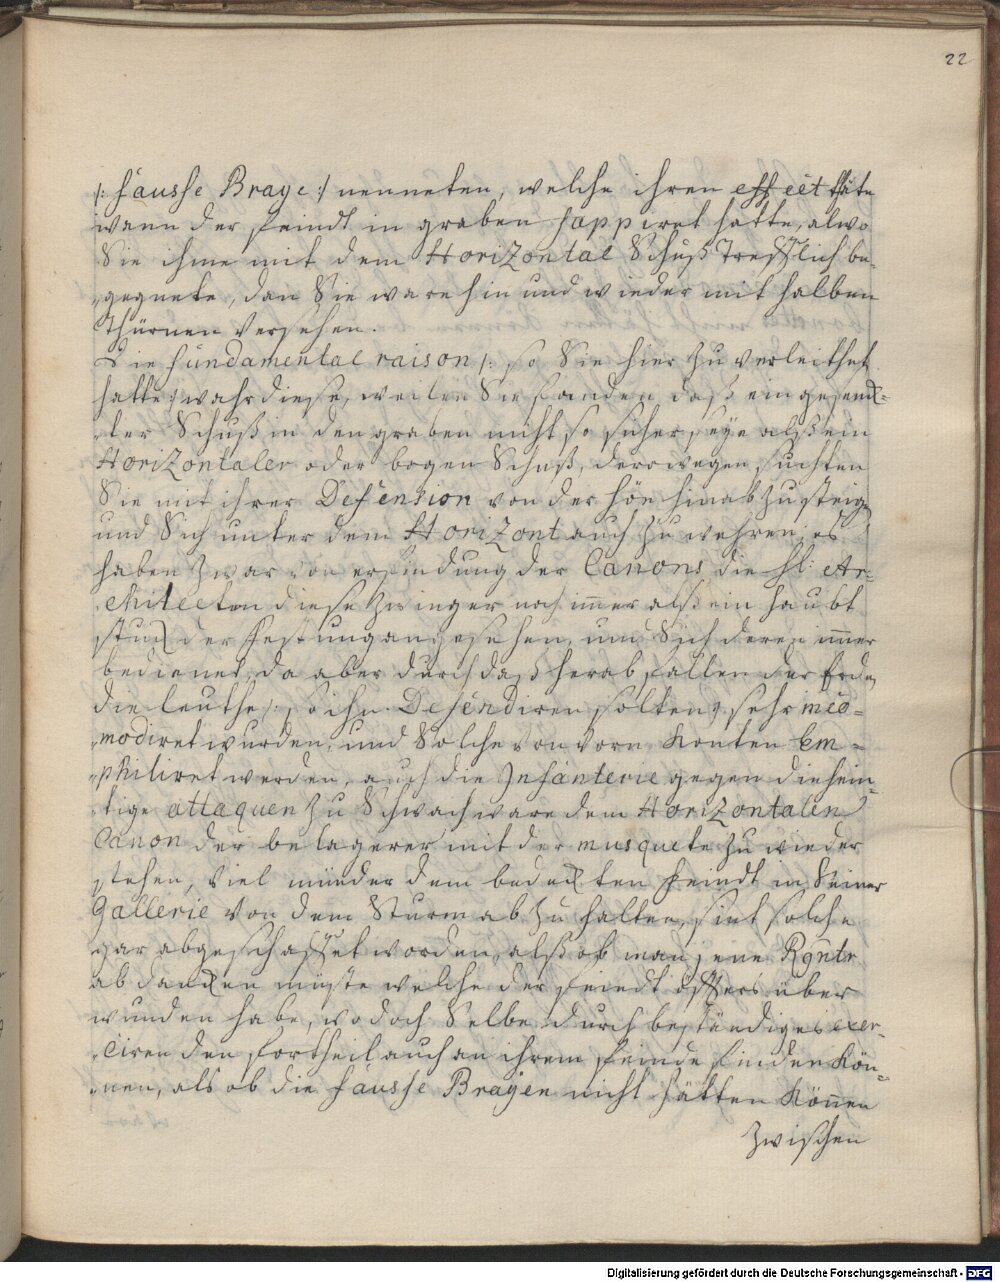 22
/: faussse Braye :/ nenneten, welche ihren effect thäte
wann der feindt in graben sappiret hatte, alwo
Sie ihme mit dem Horizontal Schuß Trefflich be-
gegnete, dan Sie ware hin und wieder mit halben
Thürnen Versehen.
Die fundamental raison /: so Sie hier zu verleithet
hatte :/ wahr diese, weilen Sie fanden daß ein gesenck-
ter Schuß in den graben nicht so sicher seye alß ein
Horizontaler oder bogen Schuß, derowegen suchten
Sie mit ihrer Defension von der höe hinab zu steigen
und Sich unter dem Horizont auch zu wehren, es
haben zwar von erfindung der Canons die H: Ar-
chitecten diese Zwinger noch immer alß ein haubt
stuck der festung angesehen, und Sich deren immer
bedienet, da aber durch daß herab fallen der Erden
die leuthe /: so ihn Defendiren solten :/ sehr incö-
modiret wurden, und Solche von vorn Konten Em-
philiret werden, auch die Infanterie gegen die hein-
tige attaquen zu Schwach ware dem Horizontalen
Canon der belagerer mit der musquete zu wieder
stehen, viel münder dem bedeckten feindt in Seiner
Gallerie von dem Sturm ab zu halten, sint solche
gar abgeschaffet worden, alß ob man jene Rgntr
abdancken müste welche der feindt öffters über
wunden habe, wo doch Selbe durch beständiges exer-
ciren den fortheil auch an ihrem feinde finden Kön-
nen, als ob die fausse Brayen nicht hätten Können
Zwischen
Digitalisierung gefördert durch die Deutsche Forschungsgemeinschaft - DFG